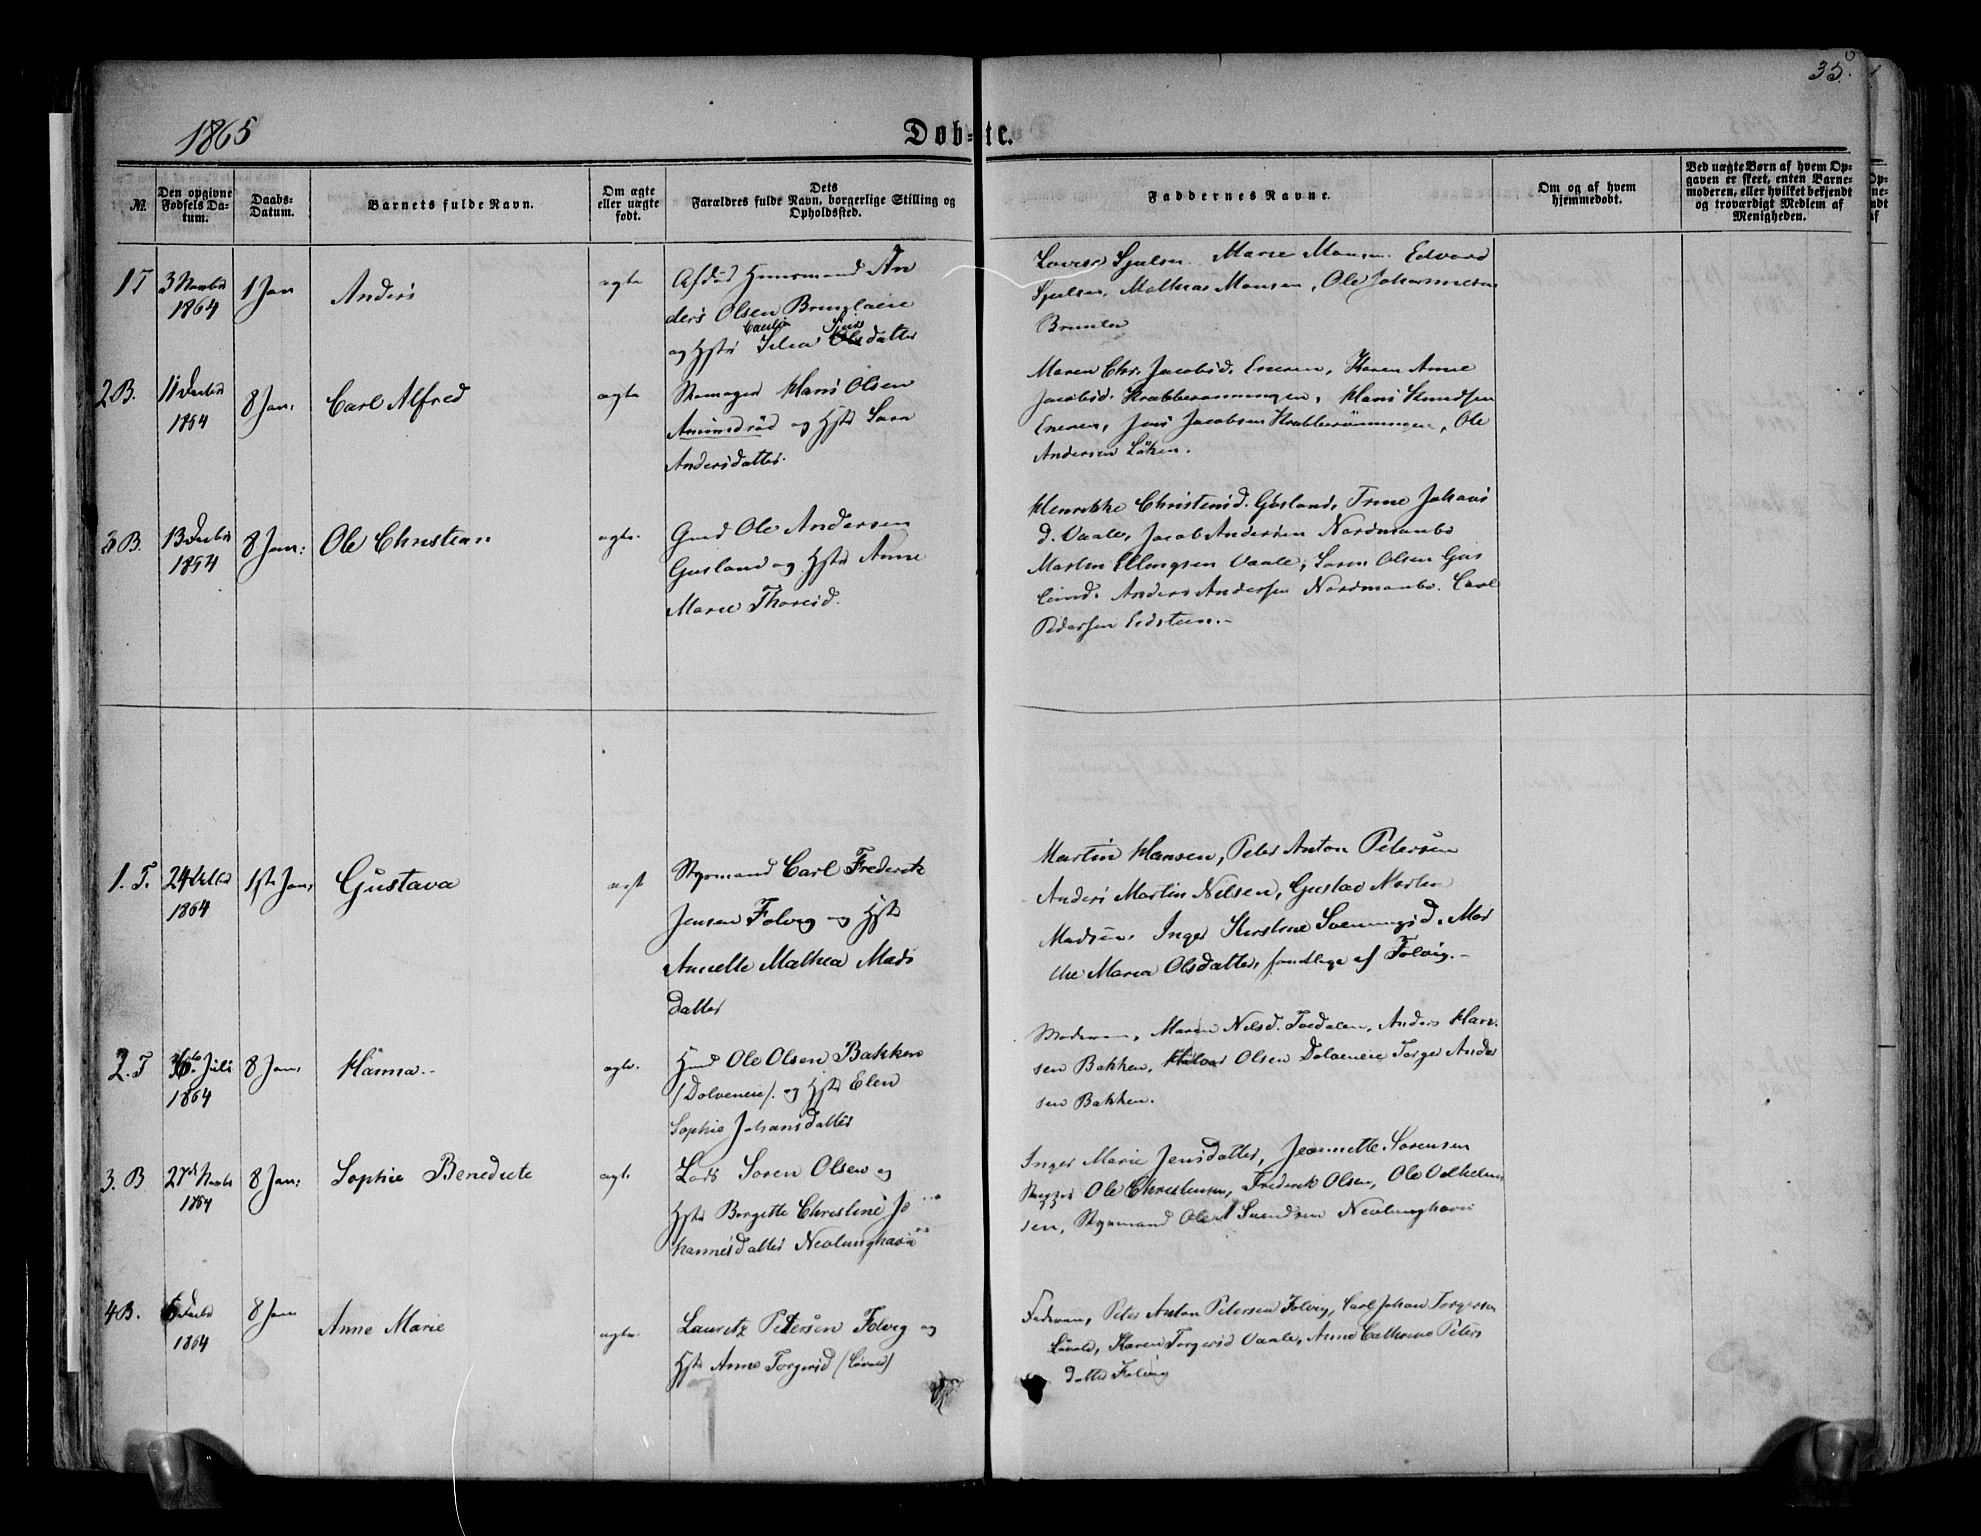 35.
1865
Døb-te.
№.
Den opgivne Fødsels Da-tum.
Daabs-Datum.
Barnets fulde Navn.
Om ægte eller uægte født.
Dets Forældres fulde Navn, borgerlige Stilling og Opholdssted.
Faddernes Navne.
Om og af hvem hjemmedøbt.
Ved uægte Børn af hvem Op-gaven er skeet, enten Barne-moderen, eller hvilket bekjendt og troværdigt Medlem af Menigheden.
1 T
3 Novbr 1864
1 Jan
Anders
ægte
Afdød Huusmand An
ders Olsen Brunlaeie
og Hstr
datter
Marie Edvard
Mathias Monsen, Ole Johannesen
2 B.
11 Decbr 1864
8 Jan:
Carl Alfred
ægte
Skomager Hans Olsen
og Hstr Sara
Andersdatter.
Maren Chr. Jacobsd. Karen Anne
Jacobsd. Krabberønningen, Hans Knudsen
Jens Jacobsen Krabberønningen, Ole
Andersen Løken.
3 B.
13 Decbr 1864
8 Jan:
Ole Christian
ægte.
Gmd Ole Andersen
Gusland og Hstr Anne
Marie Thoresd.
Henrikke Christensd. Gusland, Trine Johans
d. Vaale, Jacob Andersen Nordmanbo
Martin Ellingsen Vaale, Soren Olsen Gus
land. Anders Andersen Nordmanbo. Carl
Pedersen Eidsteen.-
1. T.
24 1864
1ste Jan:
Gustava
ægt
Styrmand Carl Frederik
Jensen Folvig og Hstr
Annette Mathea Mads
datter
Martin Hansen, Peter Anton Petersen
Anders Martin Nielsen, Gustav Martin
Madsen. Inger Kirstine Svenningsd. Mar
the Maria Olsdatter, samtlige af Folvig.-
2. T
Juli 1864
8 Jan:
Hanna.-
ægte.
Hmd Ole Olsen Bakken
/Dolveneie/. og Hstr Elen
Sophie Johansdatter
Moderen, Maren Nilsd. Tvedalen, Anders Han-
sen Bakken, Olsen Dolveneie Torger Ander
sen Bakken.
3. B
27de Novbr 1864
8 Jan:
Sophie Benedicte
ægt.
Lods Soren Olsen og
Hstr Borgitte Christine Jo
hannesdatter Nevlunghavn
Inger Marie Jensdatter, Jeannette Sorensen
Skipper Ole Christensen, Frederik Olsen, Ole Vilhelm
sen, Styrmand Ole A Svendsen Nevlunghavn
4 B.
6 Decbr 1864
8 Jan
Anne Marie
ægte.
Lauritz Petersen Folvig og
Hstr Anne Torgersd (Løvald)
Faderen, Peter Anton Petersen Folvig, Carl Johan Torgersen
Løvald, Karen Torgersd Vaale, Anne Cathrine Peters
datter Folvig